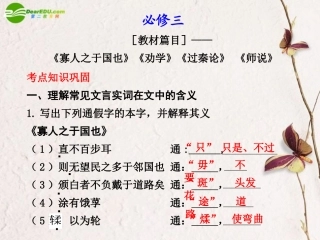 DearEDU.com
必修三
［教材篇目］——
《寡人之于国也》《劝学》《过秦论》 《师说》
考点知识巩固
一、理解常见文言实词在文中的含义
1. 写出下列通假字的本字，并解释其义
《寡人之于国也》
（1）直不百步耳 通：“ 只” 只是、不过
（2）则无望民之多于邻国也 通：“ 毋” , 不要
（3）颁白者不负戴于道路矣 通：“ 斑” , 头发花
（4）涂有饿莩 通：“ 途” , 道路
（5 𫐓 以为轮 通：“ 煣” , 使弯曲